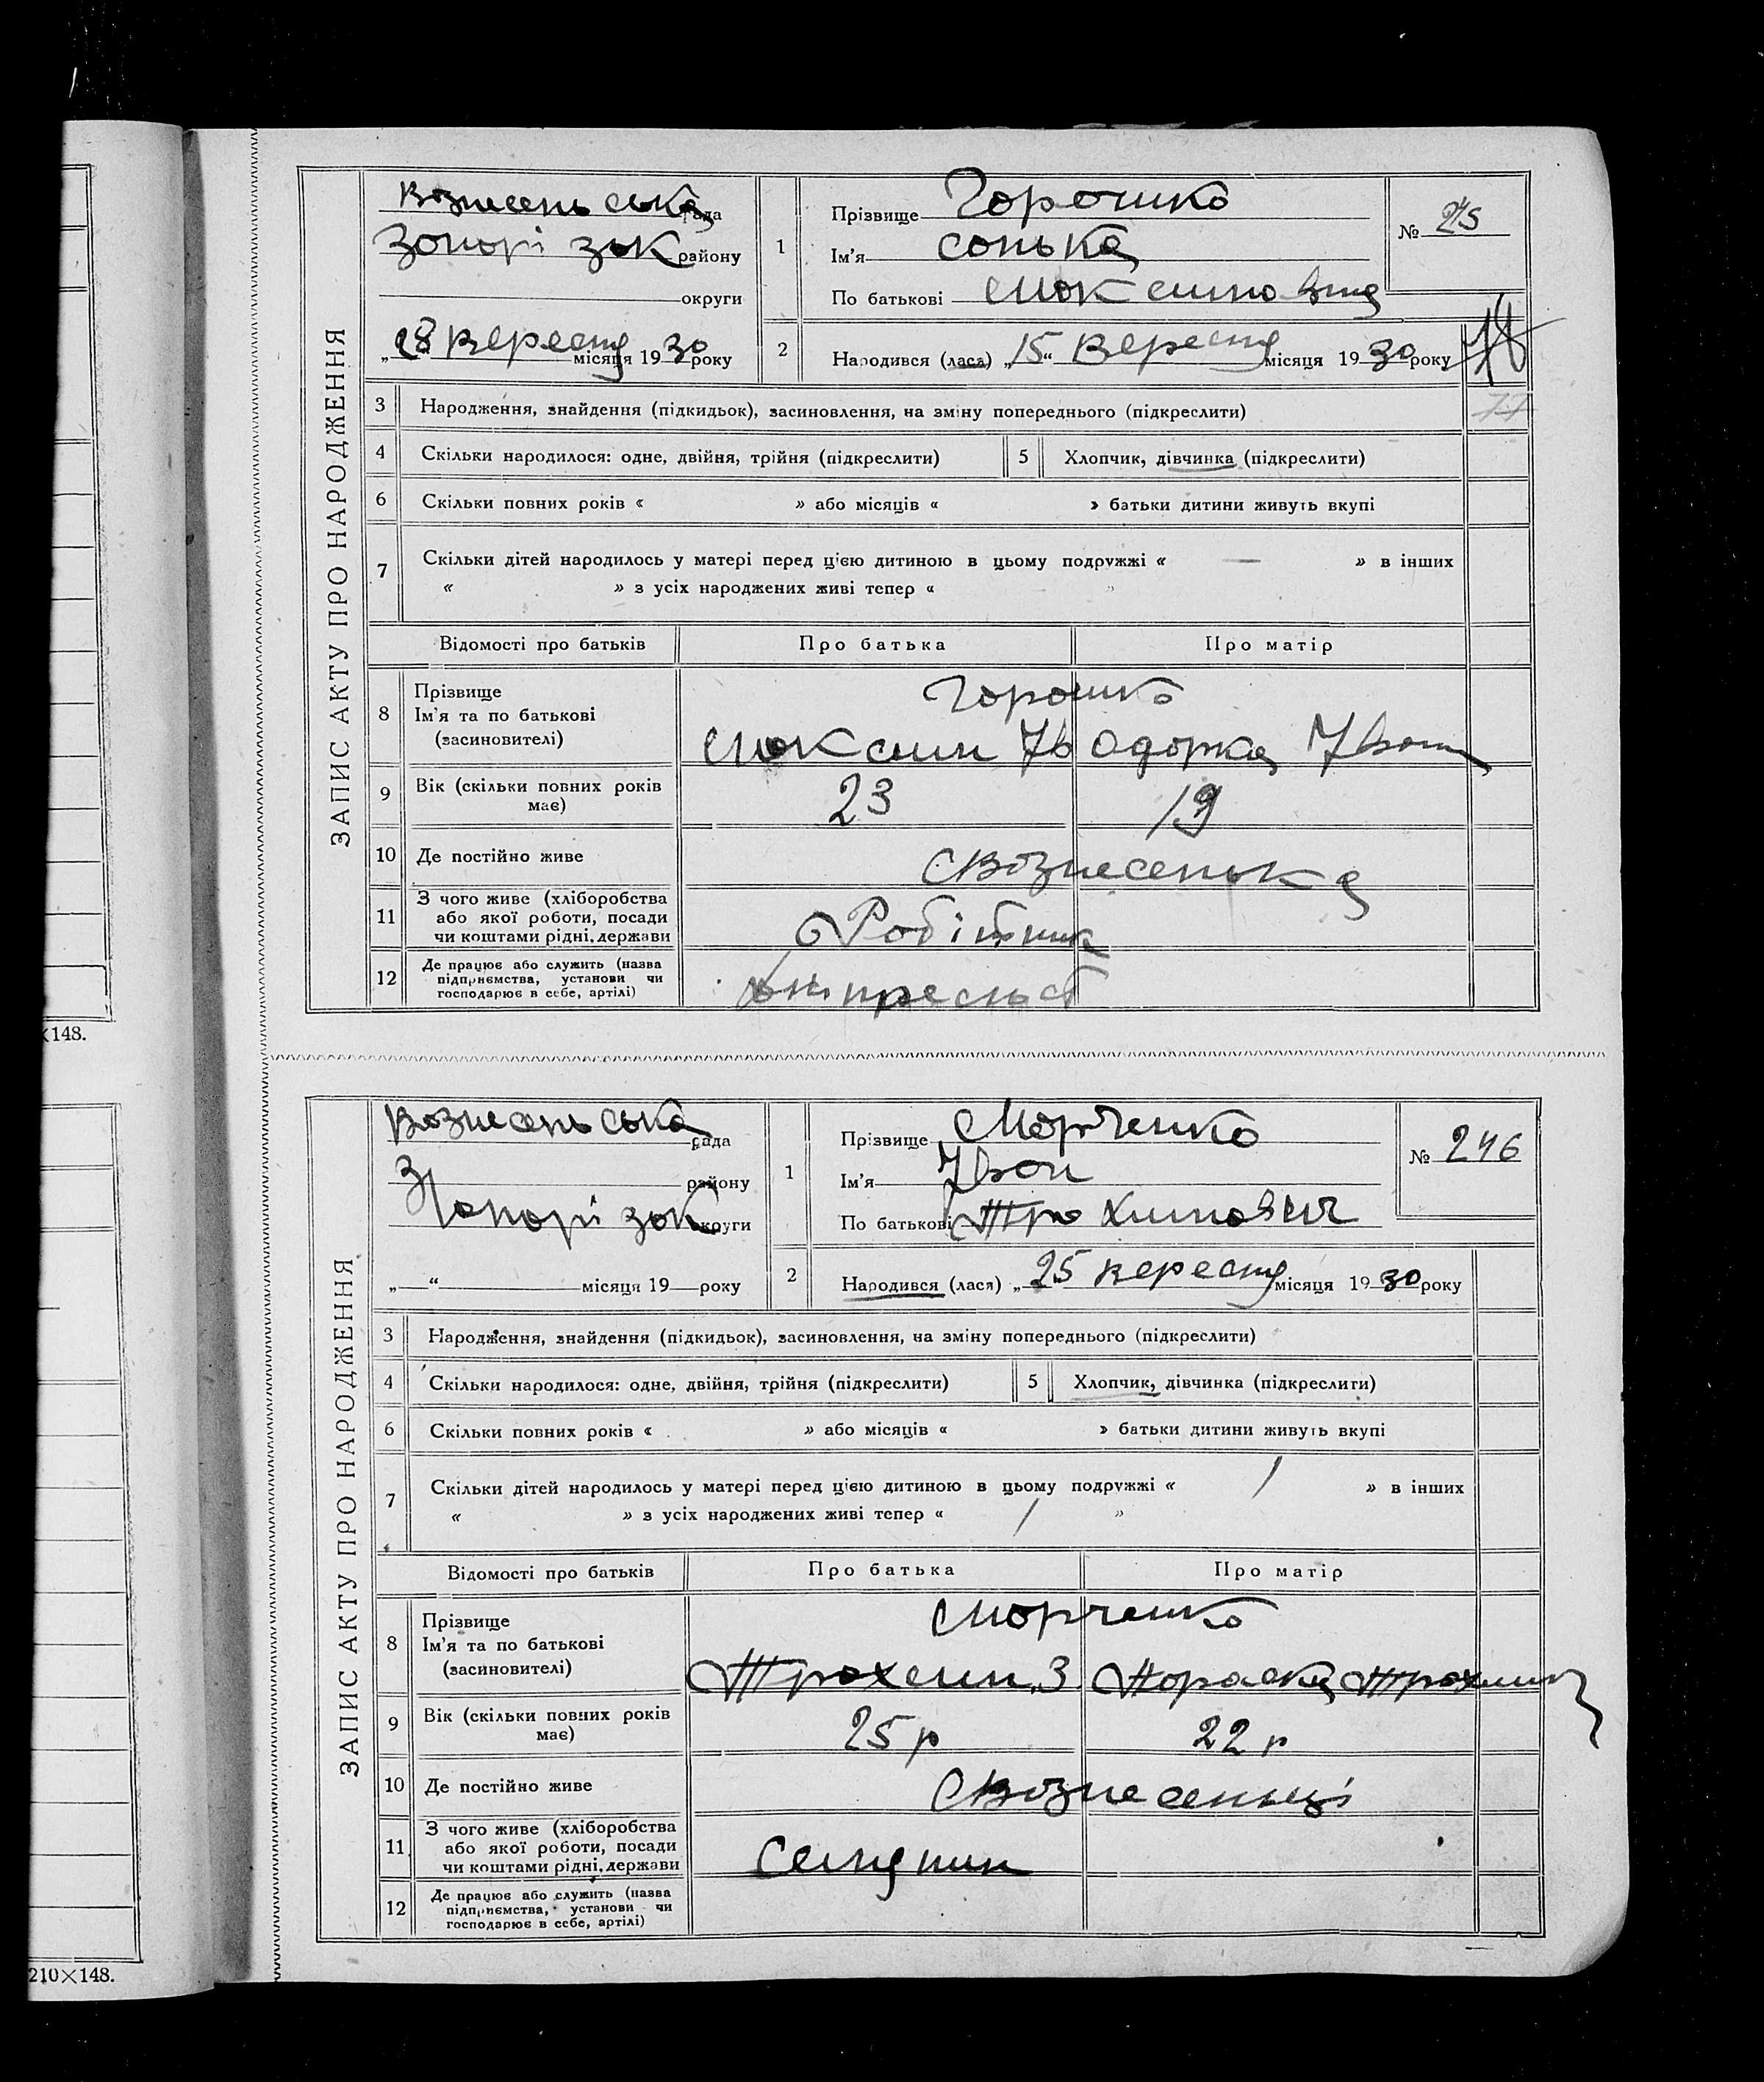 ×148.
210×148.
ЗАПИС АКТУ ПРО НАРОДЖЕННЯ
Вознесеньська рада
Запорізьк району
округи
„28 Вересня місяця 1930 року
1
Прізвище Горошко
Ім'я Сонька
По батькові Максимовна
№ 245
2
Народився (лася) „15“ Вересня місяця 1930 року
3 Народження, знайдення (підкидьок), засиновлення, на зміну попереднього (підкреслити)
77
4 Скільки народилося: одне, двійня, трійня (підкреслити) 5 Хлопчик, дівчинка (підкреслити)
6 Скільки повних років « » або місяців « » батьки дитини живуть вкупі
7 Скільки дітей народилось у матері перед цією дитиною в цьому подружжі « — » в інших
« » з усіх народжених живі тепер « »
Відомості про батьків Про батька Про матір
8 Прізвище
Ім'я та по батькові
(засиновителі)
Горошко
Максим Ів Одарка Іван
9 Вік (скільки повних років
має)
23 19
10 Де постійно живе
с Вознесенька
11 З чого живе (хліборобства
або якої роботи, посади
чи коштами рідні, держави
Робітник
12 Де працює або служить (назва
підприємства, установи чи
господарює в себе, артілі)
ЗАПИС АКТУ ПРО НАРОДЖЕННЯ
Вознесеньська рада
району
Запорізьк округи
„ “ місяця 19 року
1
Прізвище Марченко
Ім'я Іван
По батькові Трохимович
№ 246
2
Народився (лася) „25 вересня місяця 1930 року
3 Народження, знайдення (підкидьок), засиновлення, на зміну попереднього (підкреслити)
4 Скільки народилося: одне, двійня, трійня (підкреслити) 5 Хлопчик, дівчинка (підкреслити)
6 Скільки повних років « » або місяців « » батьки дитини живуть вкупі
7 Скільки дітей народилось у матері перед цією дитиною в цьому подружжі « 1 » в інших
« » з усіх народжених живі тепер « 1 »
Відомості про батьків Про батька Про матір
8 Прізвище
Ім'я та по батькові
(засиновителі)
Марченко
Трохим З Параска Трохим
9 Вік (скільки повних років
має)
25 р 22 р
10 Де постійно живе
с Вознесеньці
11 З чого живе (хліборобства
або якої роботи, посади
чи коштами рідні, держави
Селянин
12 Де працює або служить (назва
підприємства, установи чи
господарює в себе, артілі)